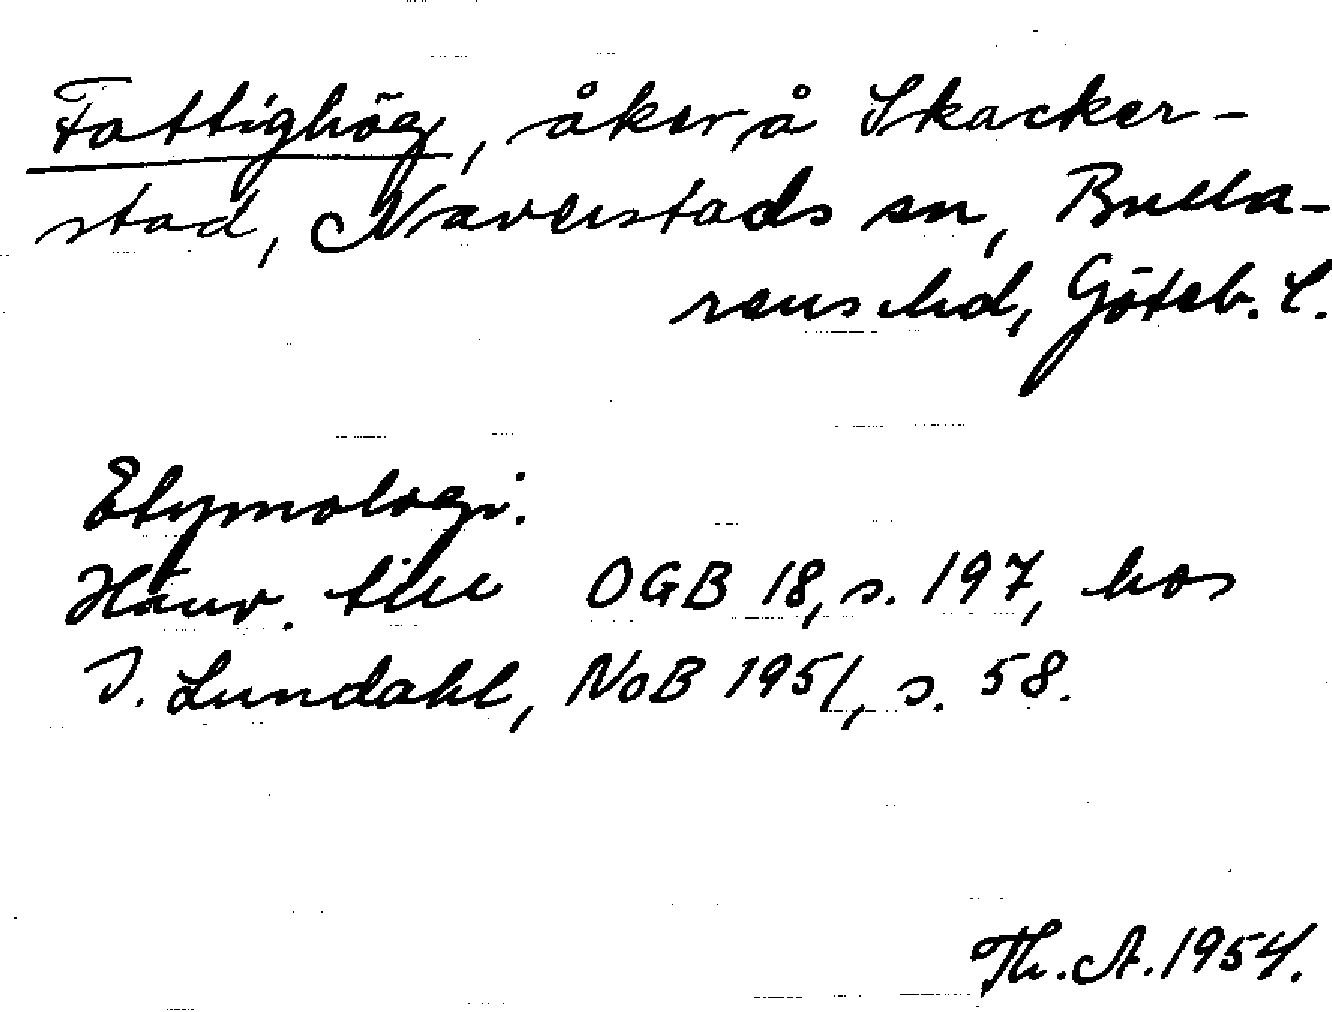 Fattighög, åker å Skacker-
stad, Naverstads sn, Bulla-
rens hd, Göteb. l.
Etymologi:
Hänv. till OGB 18, s. 197, hos
I. Lundahl, NoB 1951, s. 58.
Th. A. 1954.